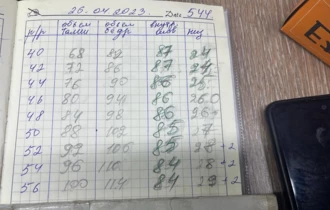 26.04.2023 544
р/р объем талии объем бедр внутр шов НЦ
40 68 82 87 24
42 72 86 87 24
44 76 90 86 25
46 80 94 86 26.0
48 84 98 86 26
50 88 102 85 27
52 92 106 85 28+2
54 96 110 84 28+2
56 100 114 84 29+2